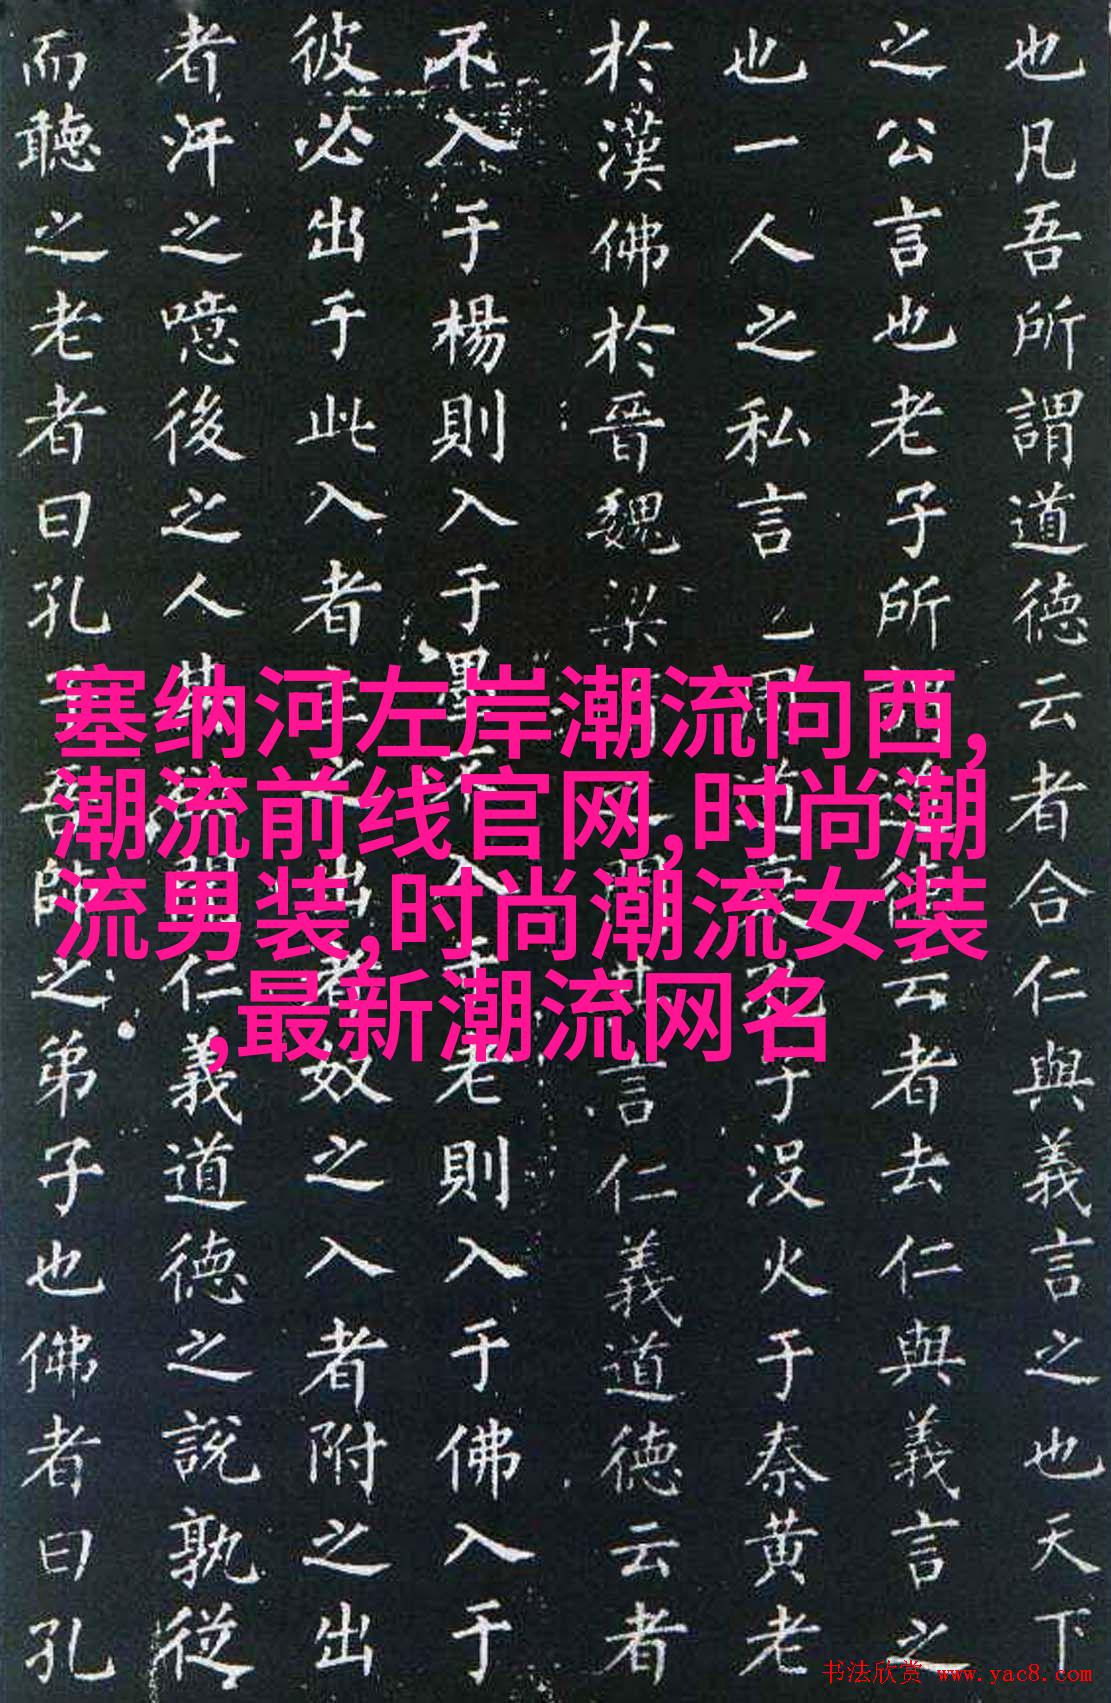 也凡吾所謂道德云者合仁與義言之也天下
之公言也老子所謂道德云者去仁與義言之
也一人之私言也周道衰孔子没火于秦黄老
於漢佛於晉魏梁隋之間言仁義道德云者
不入于楊則入于墨不入于老則入于佛入于
彼必出于此入者主之出者奴之入者附之出
者汙之噫後之人其欲聞仁義道德之說孰從
而聽之老者曰孔子吾師之弟子也佛者曰孔
塞纳河左岸潮流向西,
潮流前线官网,时尚潮
流男装,时尚潮流女装
,最新潮流网名
书法欣赏 www.yac8.com